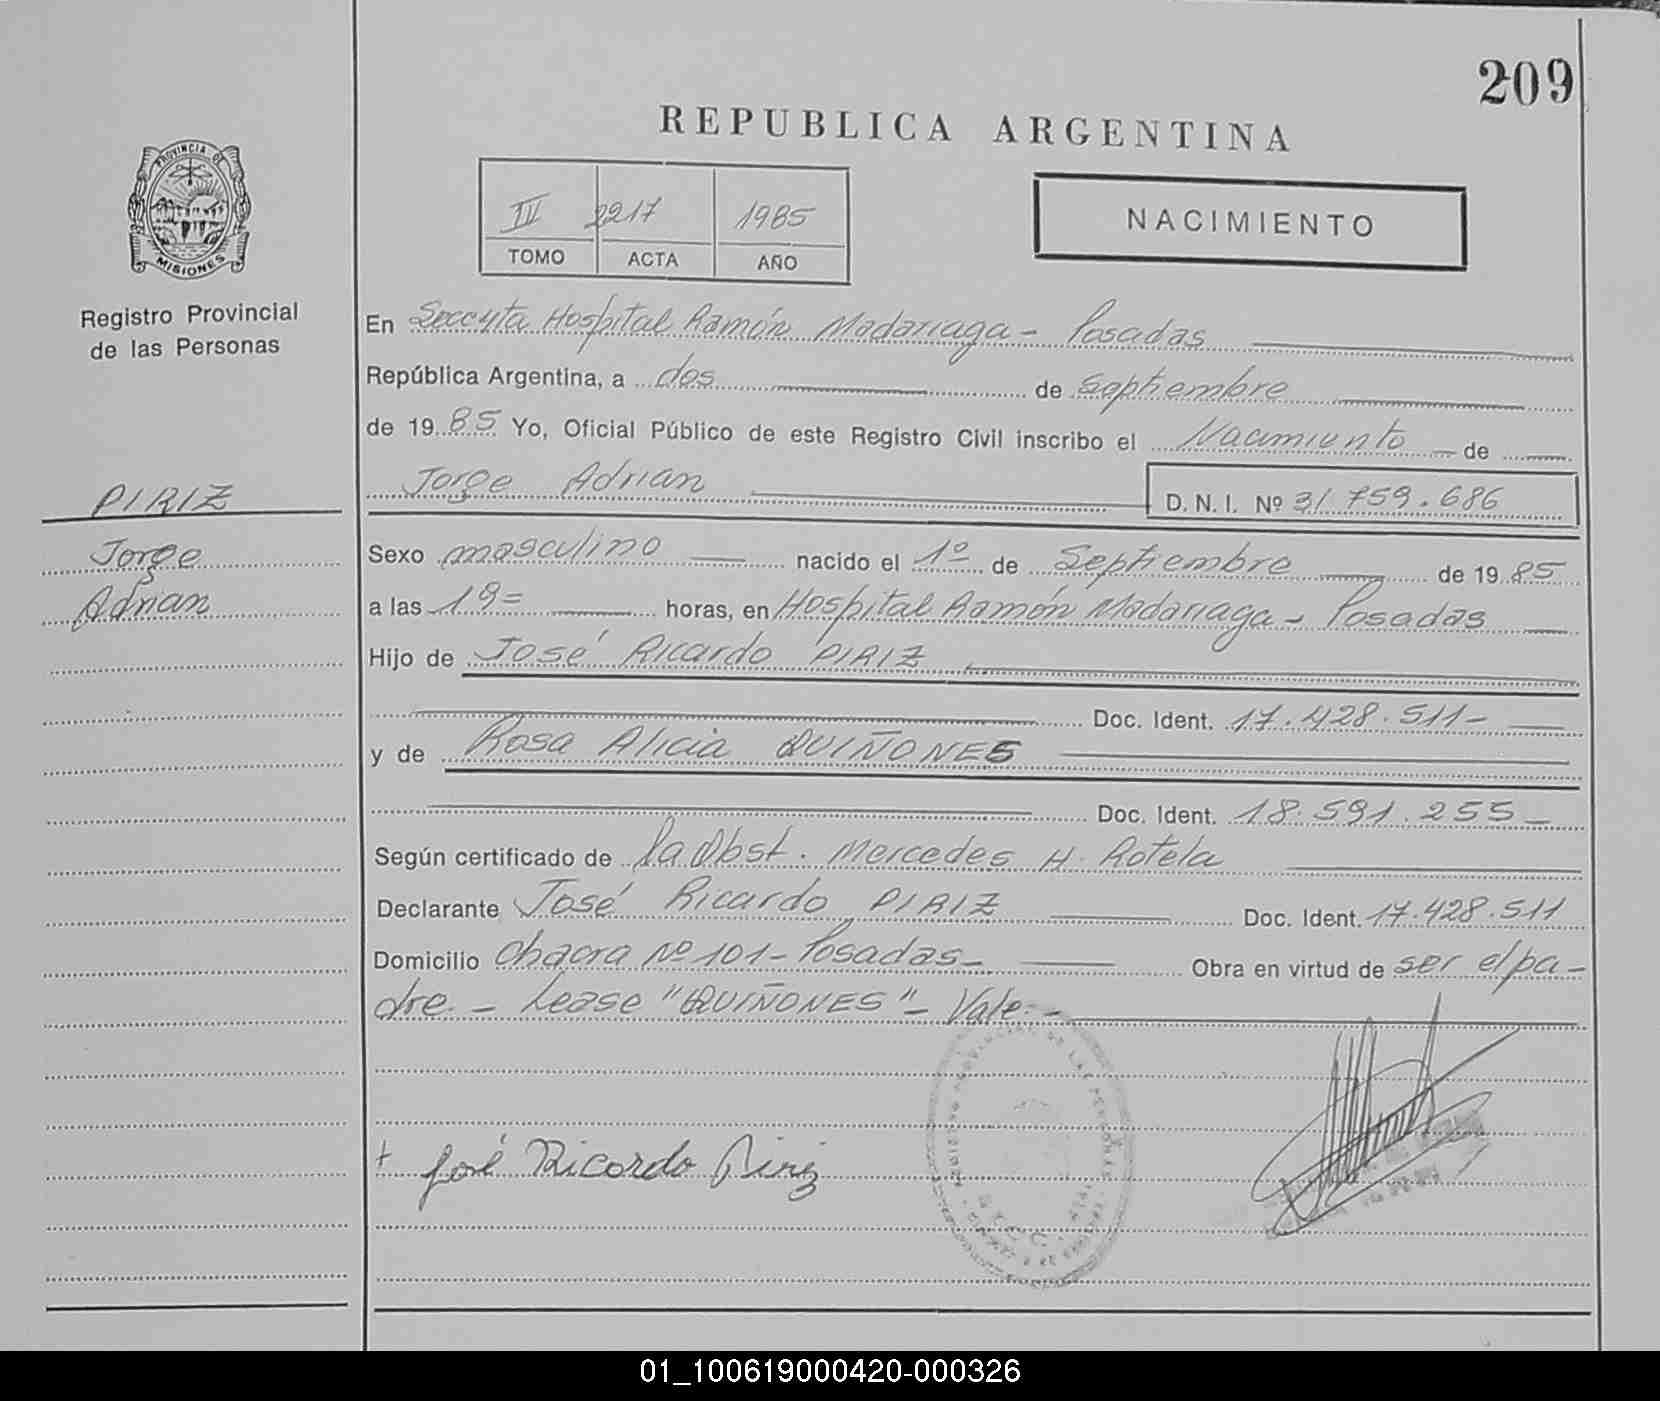 209
REPUBLICA ARGENTINA
PROVINCIA DE
MISIONES
IV 2217 1985
TOMO ACTA AÑO
NACIMIENTO
Registro Provincial
de las Personas
En Seccyta Hospital Ramón Madariaga - Posadas
República Argentina, a dos de Septiembre
de 1985 Yo, Oficial Público de este Registro Civil inscribo el Nacimiento de
Jorge Adrian D. N. I. Nº 31.759.686
PIRIZ
Jorge
Adrian
Sexo masculino nacido el 1º de Septiembre de 1985
a las 19= horas, en Hospital Ramón Madariaga - Posadas
Hijo de José Ricardo PIRIZ
Doc. Ident. 17.428.511-
y de Rosa Alicia QUIÑONES
Doc. Ident. 18.591.255-
Según certificado de la Obst. Mercedes H. Rotela
Declarante José Ricardo PIRIZ Doc. Ident. 17.428.511
Domicilio Chacra Nº 101 - Posadas - Obra en virtud de ser el pa-
dre. - Lease "QUIÑONES" - Vale. -
José Ricardo Piriz
01_100619000420-000326